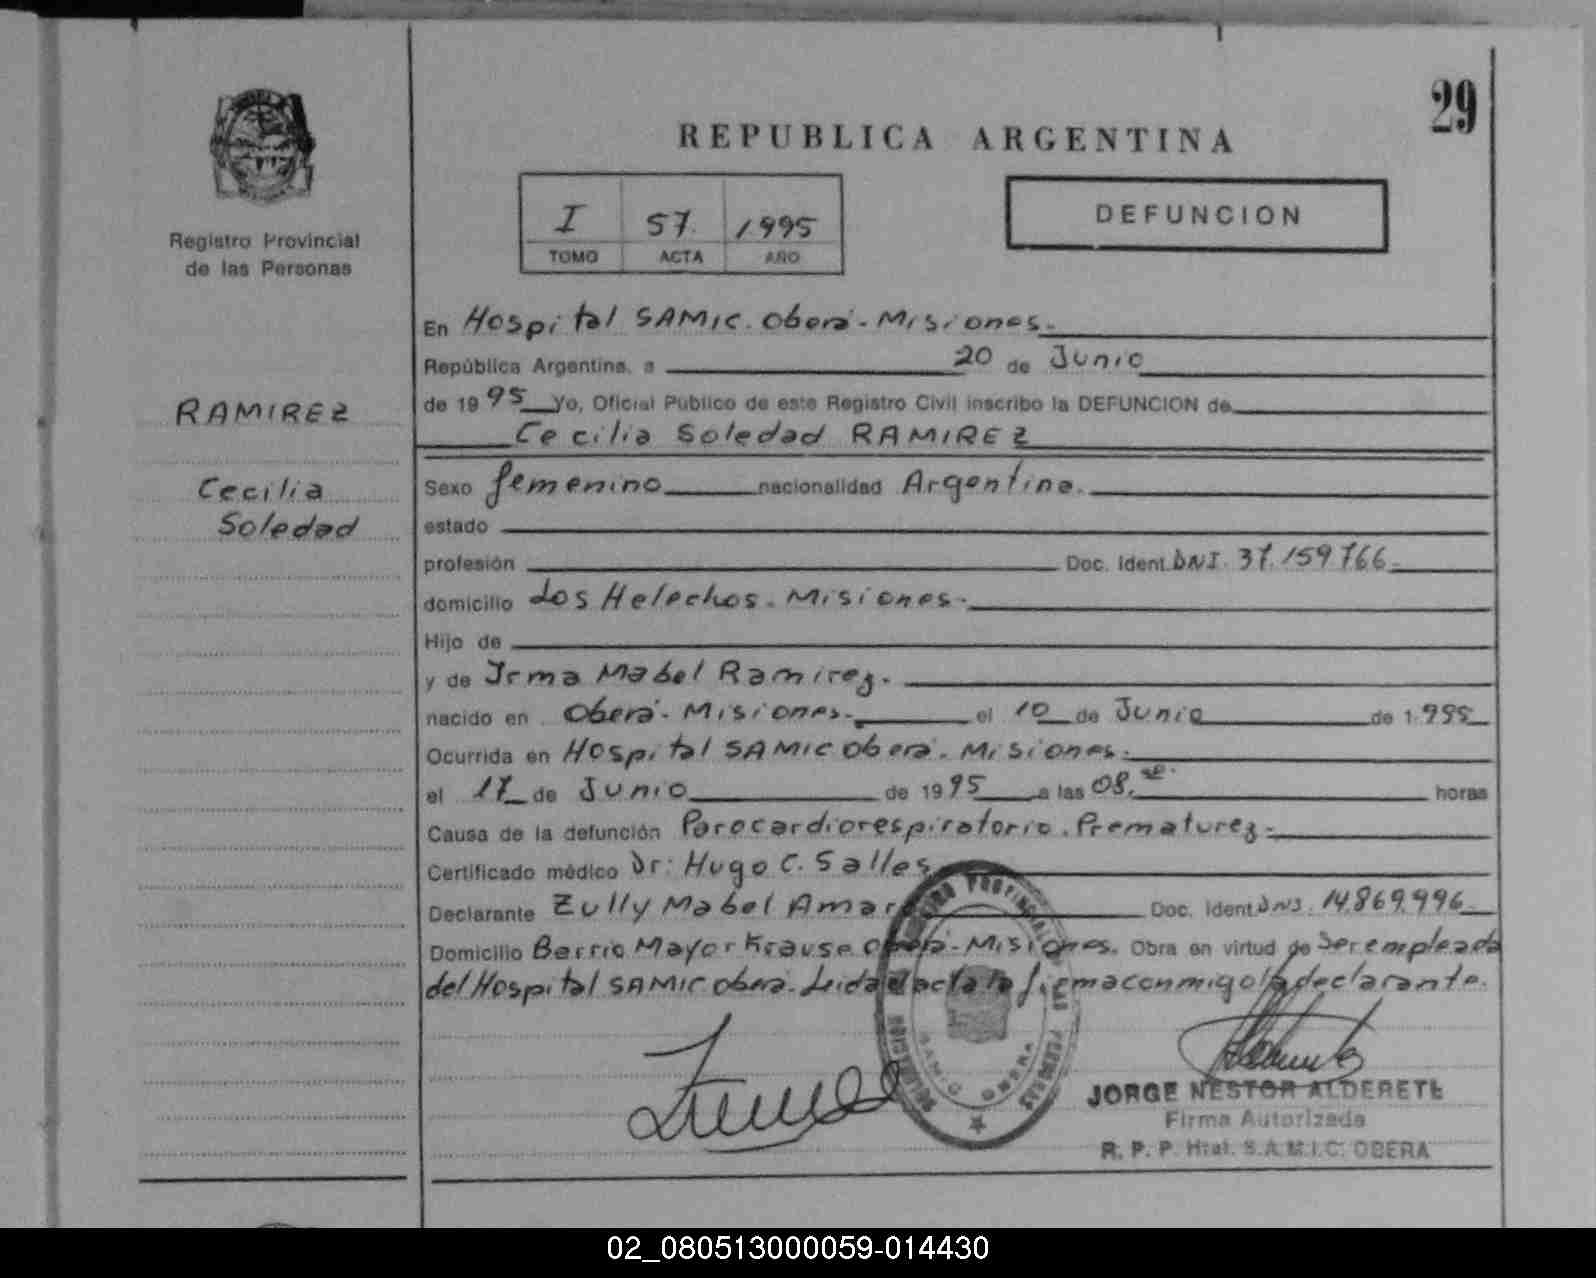 29
REPUBLICA ARGENTINA
I 57 1995
TOMO ACTA AÑO
DEFUNCION
Registro Provincial
de las Personas
RAMIREZ
Cecilia
Soledad
En Hospital SAMIC. Oberá - Misiones.
República Argentina, a 20 de Junio
de 1995 Yo, Oficial Público de este Registro Civil inscribo la DEFUNCION de
Cecilia Soledad RAMIREZ
Sexo femenino nacionalidad Argentina.
estado
profesión Doc. Ident. DNI. 37.159766
domicilio Los Helechos. Misiones.
Hijo de
y de Irma Mabel Ramirez.
nacido en Oberá - Misiones. el 10 de Junio de 1.995
Ocurrida en Hospital SAMIC Oberá. Misiones.
el 17 de Junio de 1995 a las 08, horas
Causa de la defunción Parocardiorespiratorio. Prematurez.
Certificado médico Dr: Hugo C. Salles
Declarante Zully Mabel Amaro Doc. Ident. DNI. 14.869.996
Domicilio Barrio Mayor Krause Oberá - Misiones. Obra en virtud de Ser empleada
del Hospital SAMIC Oberá. Leida el acta la firma conmigo la declarante.
REGISTRO PROVINCIAL DE LAS PERSONAS
S.A.M.I.C. OBERA
JORGE NESTOR ALDERETE
Firma Autorizada
R. P. P. Htal. S.A.M.I.C. OBERA
02_080513000059-014430